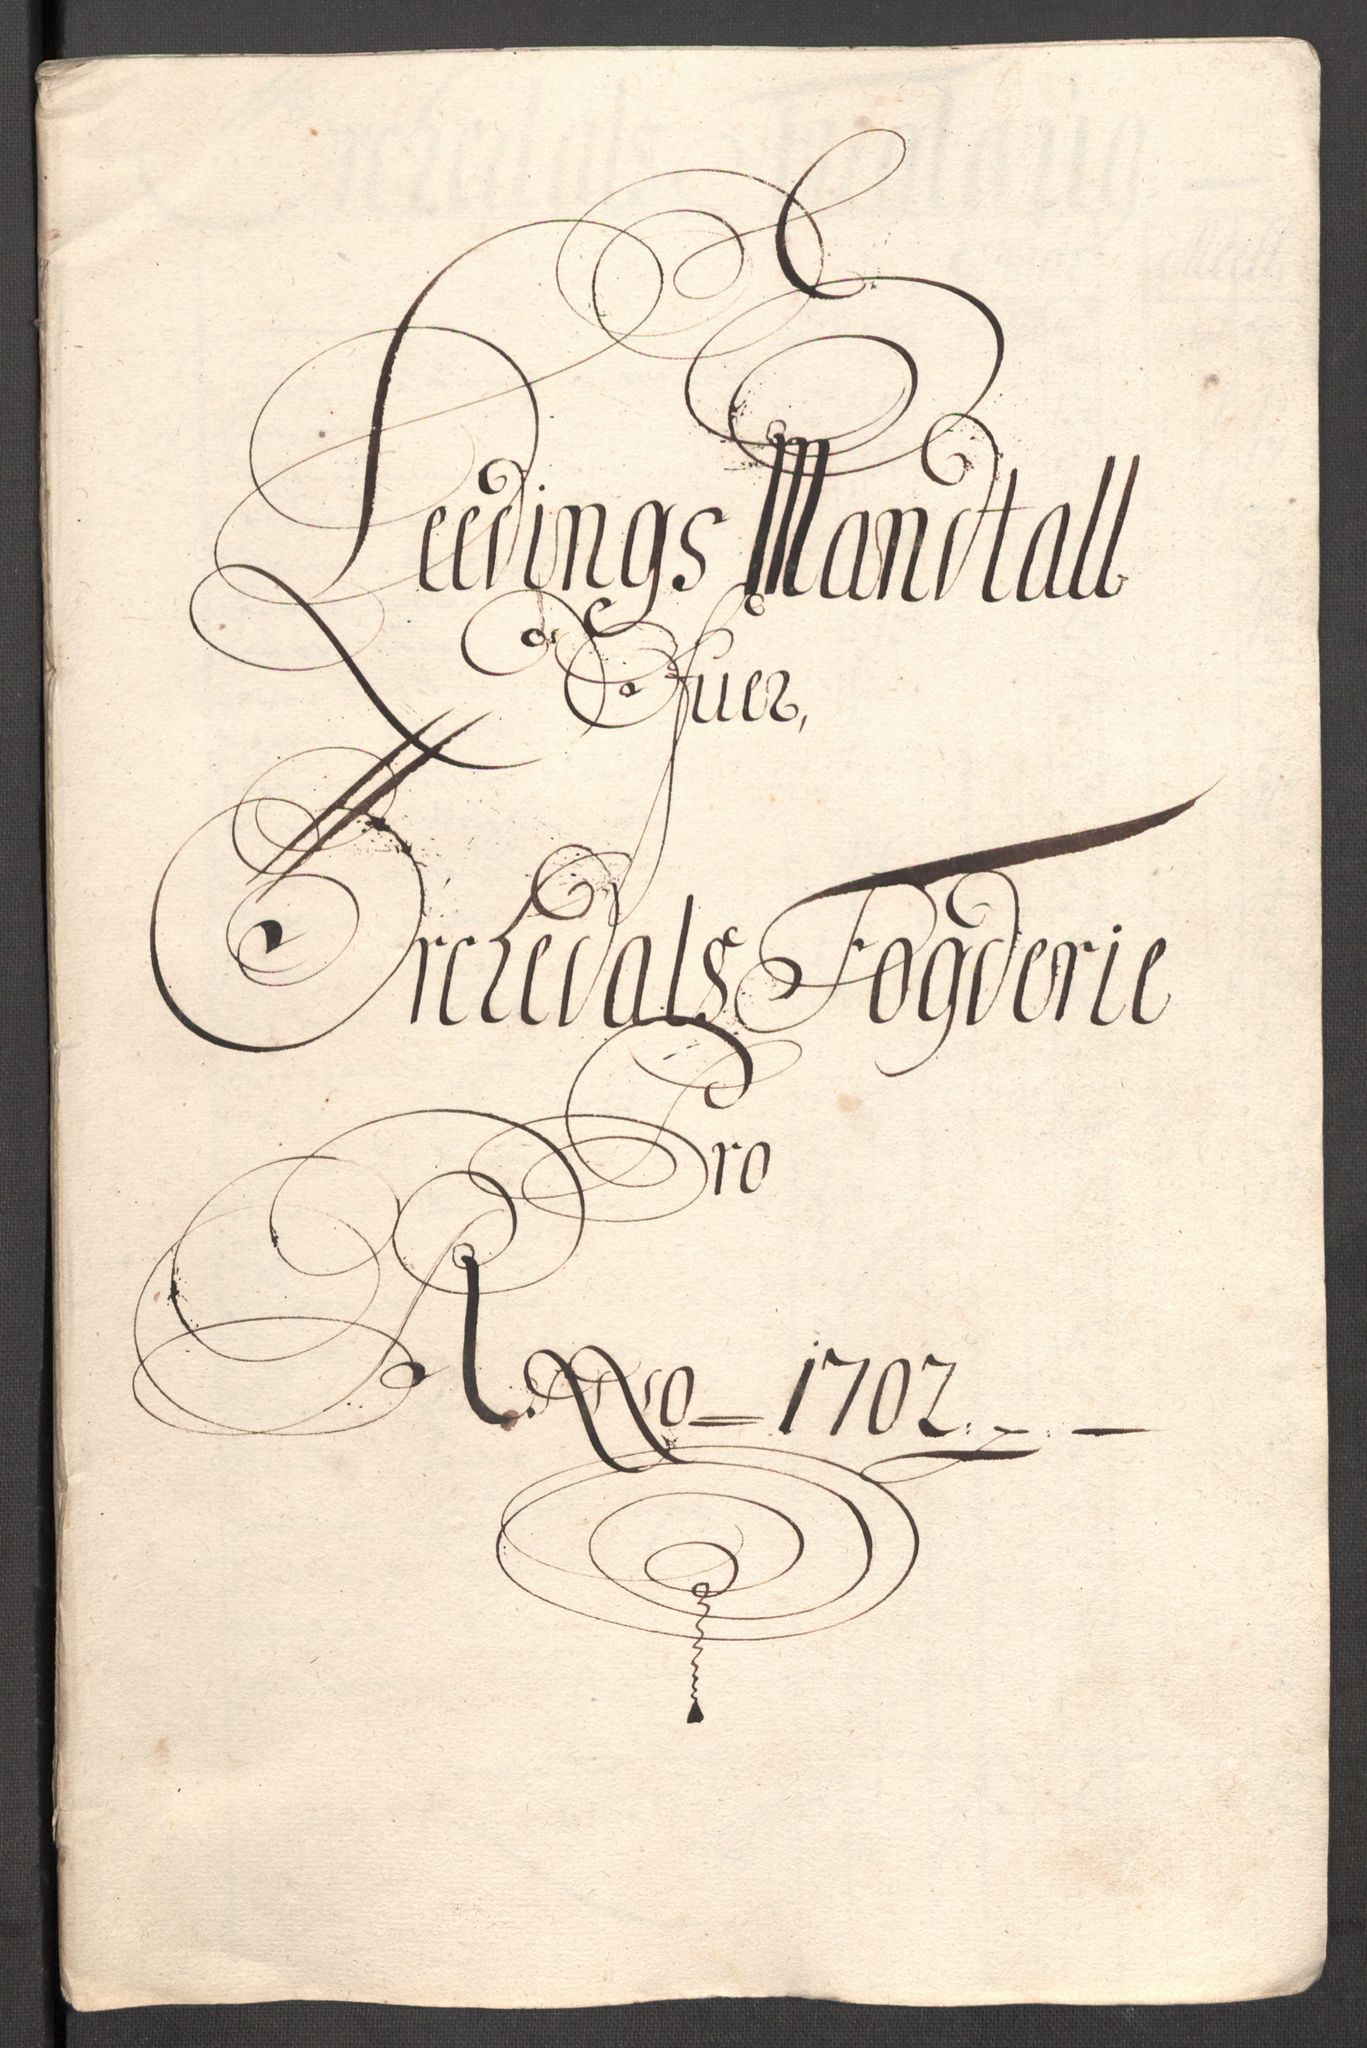 Leedings Mandtall
Ofuer,
Orchedals Fogderie
Pro
Anno 1702.